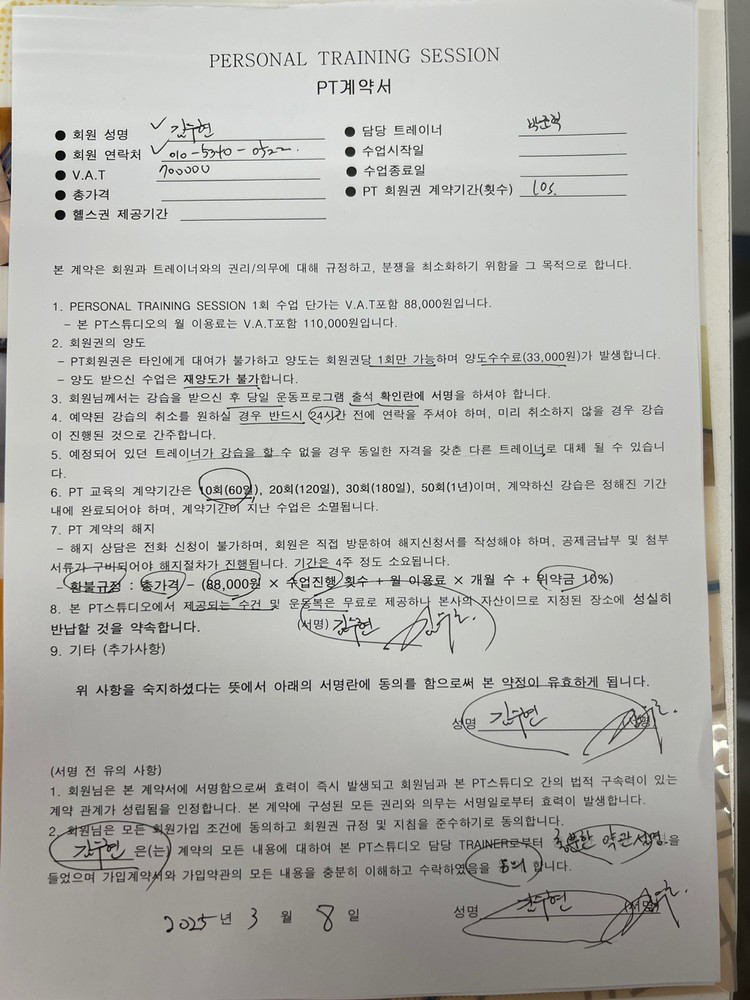 PERSONAL TRAINING SESSION
PT계약서
● 회원 성명 ✓ 김수현
● 회원 연락처 ✓ 010-5340-0522.
● V.A.T 700000
● 총가격
● 헬스권 제공기간
● 담당 트레이너
● 수업시작일
● 수업종료일
● PT 회원권 계약기간(횟수) 10s.
본 계약은 회원과 트레이너와의 권리/의무에 대해 규정하고, 분쟁을 최소화하기 위함을 그 목적으로 합니다.
1. PERSONAL TRAINING SESSION 1회 수업 단가는 V.A.T포함 88,000원입니다.
- 본 PT스튜디오의 월 이용료는 V.A.T포함 110,000원입니다.
2. 회원권의 양도
- PT회원권은 타인에게 대여가 불가하고 양도는 회원권당 1회만 가능하며 양도수수료(33,000원)가 발생합니다.
- 양도 받으신 수업은 재양도가 불가합니다.
3. 회원님께서는 강습을 받으신 후 당일 운동프로그램 출석 확인란에 서명을 하셔야 합니다.
4. 예약된 강습의 취소를 원하실 경우 반드시 24시간 전에 연락을 주셔야 하며, 미리 취소하지 않을 경우 강습
이 진행된 것으로 간주합니다.
5. 예정되어 있던 트레이너가 강습을 할 수 없을 경우 동일한 자격을 갖춘 다른 트레이너로 대체 될 수 있습니
다.
6. PT 교육의 계약기간은 10회(60일), 20회(120일), 30회(180일), 50회(1년)이며, 계약하신 강습은 정해진 기간
내에 완료되어야 하며, 계약기간이 지난 수업은 소멸됩니다.
7. PT 계약의 해지
- 해지 상담은 전화 신청이 불가하며, 회원은 직접 방문하여 해지신청서를 작성해야 하며, 공제금납부 및 첨부
서류가 구비되어야 해지절차가 진행됩니다. 기간은 4주 정도 소요됩니다.
- 환불규정 : 총가격 - (88,000원 × 수업진행 횟수 + 월 이용료 × 개월 수 + 위약금 10%)
8. 본 PT스튜디오에서 제공되는 수건 및 운동복은 무료로 제공하나 본사의 자산이므로 지정된 장소에 성실히
반납할 것을 약속합니다. (서명) 김수현
9. 기타 (추가사항)
위 사항을 숙지하셨다는 뜻에서 아래의 서명란에 동의를 함으로써 본 약정이 유효하게 됩니다.
성명 김수현
(서명 전 유의 사항)
1. 회원님은 본 계약서에 서명함으로써 효력이 즉시 발생되고 회원님과 본 PT스튜디오 간의 법적 구속력이 있는
계약 관계가 성립됨을 인정합니다. 본 계약에 구성된 모든 권리와 의무는 서명일로부터 효력이 발생합니다.
2. 회원님은 모든 회원가입 조건에 동의하고 회원권 규정 및 지침을 준수하기로 동의합니다.
김수현 은(는) 계약의 모든 내용에 대하여 본 PT스튜디오 담당 TRAINER로부터 충분한 약관설명을
들었으며 가입계약서와 가입약관의 모든 내용을 충분히 이해하고 수락하였음을 동의 합니다.
2025년 3 월 8 일
성명 김수현 (서명)